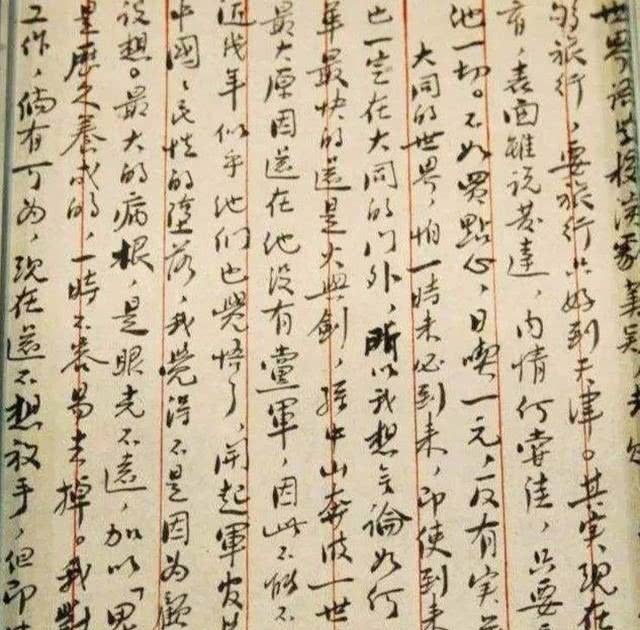 世界語學校
夠旅行，要旅行只好到天津。其实現在
育，表面雖說發達，内情何嘗佳，只要
他一切。不如買點心，日喫一元，反有实
大同的世界，怕一時未必到来，即使到来
也一定在大同的门外，所以我想無論如何
革最快的還是火與劍，孫中山奔波一世
最大原因還在他沒有黨軍，因此不能不
近幾年似乎他们也覺悟了，開起軍官
中國〻民性的墮落，我覺得不是因為顧
設想。最大的病根，是眼光不遠，加以「卑
是歷久養成的，一時不容易去掉。我對
工作，倘有可為，現在還不想放手，但即